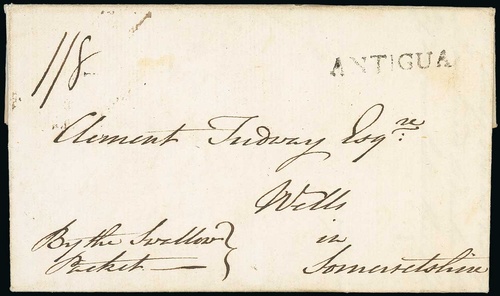 1/8
ANTIGUA
Clement Tudway Esqre.
Wells
in
Somersetshire
By the Swallow
Packet